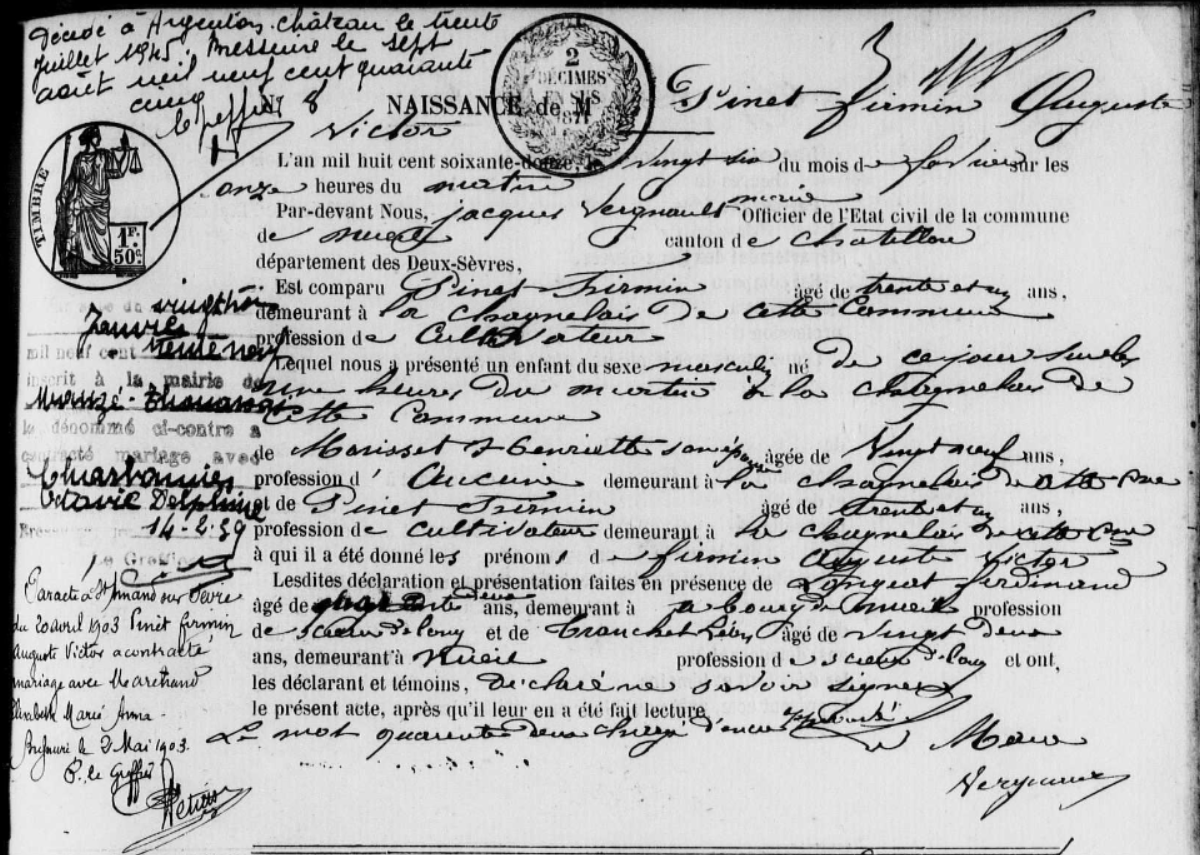 Décédé à Argenton-Château le trente
Juillet 1945. Bressuire le sept
août mil neuf cent quarante
cinq
2
DÉCIMES
1871
TIMBRE
1F.
50c.
N° 8 NAISSANCE de M Pinet firmin Auguste
Victor
L'an mil huit cent soixante-douze, le Vingt six du mois de sur les
onze heures du matin
Par-devant Nous, jacques Vergnault maire Officier de l'Etat civil de la commune
de nueil canton de chatillon
département des Deux-Sèvres,
Est comparu Pinet Firmin âgé de trente et un ans,
demeurant à la chagnelais de cette Commune
profession de Cultivateur
Lequel nous a présenté un enfant du sexe masculin né de ce jour sur les
une heures du matin à la chagnelais de
cette Commune
de Marisset henriette son épouse âgée de Vingt neuf ans,
profession d' Aucune demeurant à la chagnelais de cette
et de Pinet Firmin âgé de trente et un ans,
profession de cultivateur demeurant à la chagnelais de cette
à qui il a été donné les prénoms de firmin auguste victor
Lesdites déclaration et présentation faites en présence de Ferdinand
âgé de deux ans, demeurant à bourg de nueil profession
de scieur de long et de âgé de vingt deux
ans, demeurant à nueil profession de scieur de long et ont,
les déclarant et témoins, déclaré ne savoir signer
le présent acte, après qu'il leur en a été fait lecture
Le mot quarante deux d'encre
Maire
Vergnault
vingt trois
Janvier
mil neuf cent trente neuf
inscrit à la mairie de
Mauzé-Thouarsais
le dénommé ci-contre a
contracté mariage avec
Charbonnier
Octavie Delphine
14-2-39
Le Greffier
Par acte à St Amand sur Sèvre
du 20 avril 1903 Pinet firmin
Auguste Victor a contracté
mariage avec Marchand
Elisabeth Marie Anna
Bressuire le 2 Mai 1903.
P. le Greffier